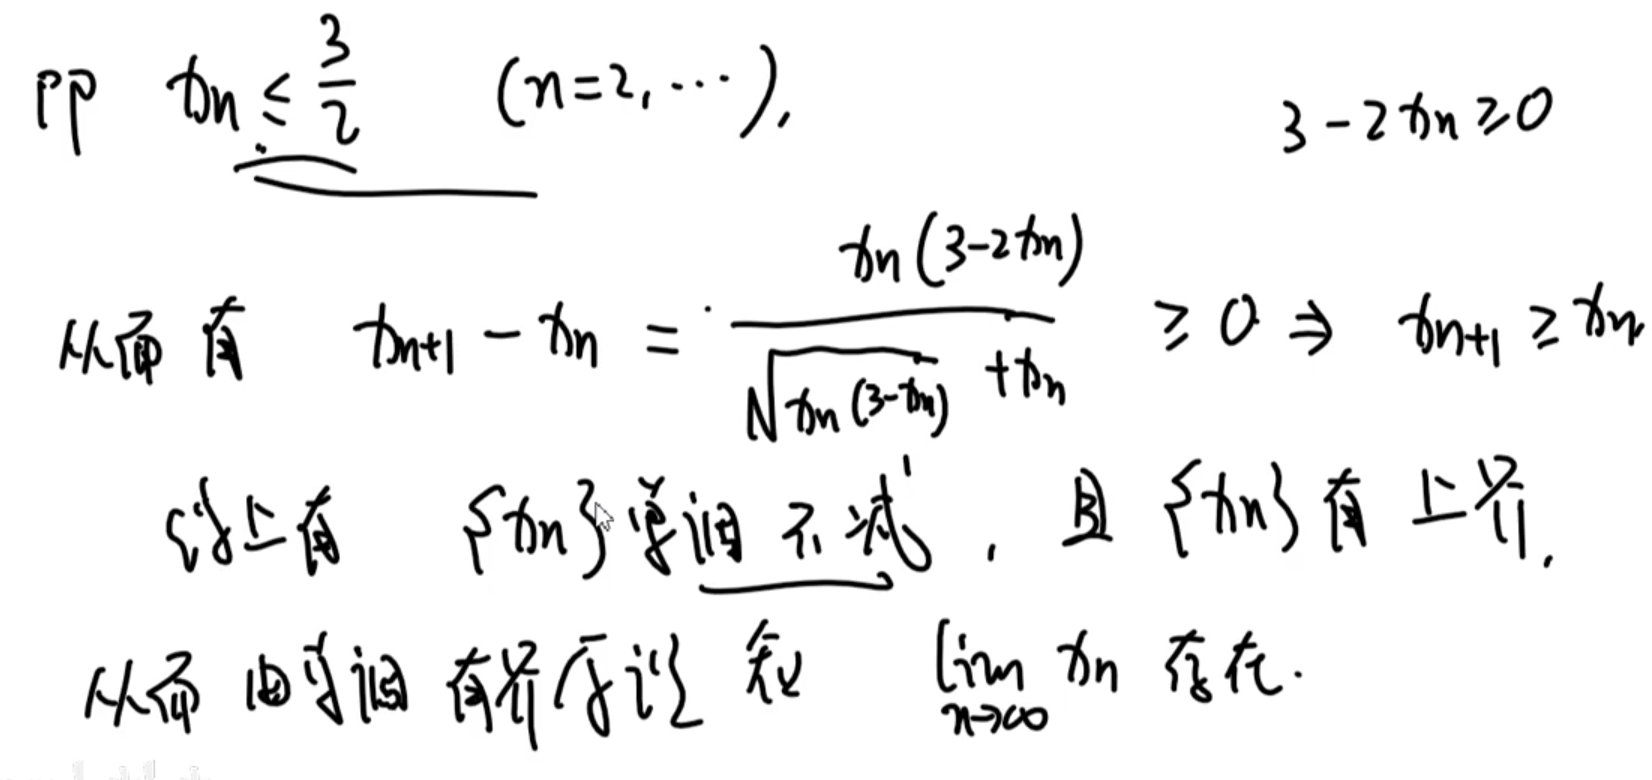 即 xn ≤ 3/2 (n=2, …), 3-2xn ≥ 0
从而有 xn+1 - xn = xn(3-2xn) / (√(xn(3-xn)) + xn) ≥ 0 ⇒ xn+1 ≥ xn
综上有 {xn}单调不减, 且{xn}有上界.
从而由单调有界准则知 lim n→∞ xn 存在.